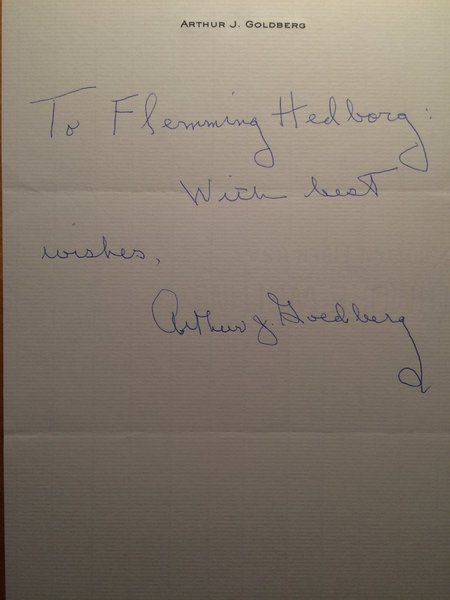 ARTHUR J. GOLDBERG
To Flemming Hedborg:
With best
wishes,
Arthur J. Goldberg